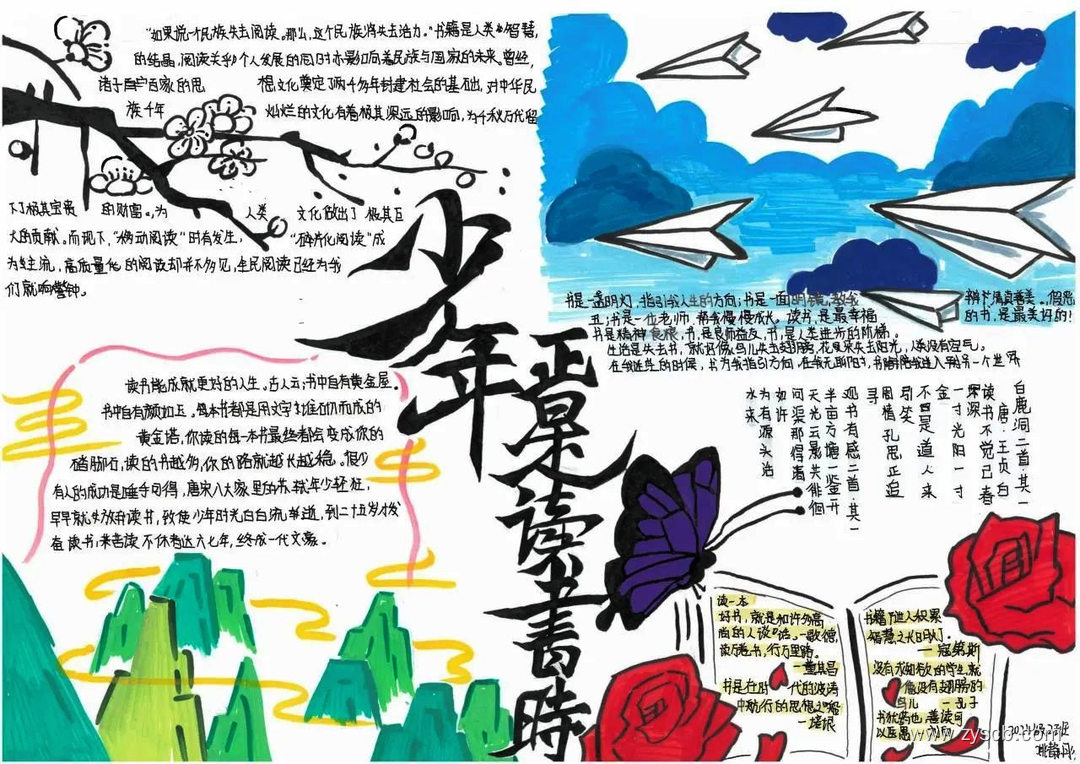 "如果说一个民族失去阅读。那么，这个民族将失去活力。"书籍是人类智慧
的结晶，阅读关乎个人发展的同时亦影响着民族与国家的未来。曾经，
诸子百家的思想文化奠定了两千多年封建社会的基础，对中华民
族千年灿烂的文化有着极其深远的影响，为千秋万代留
下了极其宝贵的财富。为人类文化做出了极其巨
大的贡献。而现下，"移动阅读"时有发生，"碎片化阅读"成
为主流，高质量化的阅读却并不多见，全民阅读已经为我
们敲响警钟。
少年正是读书時
书是一盏明灯，指引我人生的方向；书是一面明镜，教我辨
丑；书是一位老师，帮我慢慢成长。读书，是最幸福的书，是最美好的！
书是精神食粮，书是良师益友，书，是人类进步的阶梯。
生活是失去书，就好像鸟儿失去翅膀，花儿失去阳光，人类没有空气。
在我迷茫的时候，书为我指引方向，在我无聊时，书陪伴我进入到另一个世界
读书能成就更好的人生。古人云：书中自有黄金屋。
书中自有颜如玉。每本书都是用文字堆砌而成的
黄金塔，你读的每一本书最终都会变成你的
踏脚石，读的书越多，你的路就越长越稳。很少
有人的成功是唾手可得，唐宋八大家里的苏轼年少轻狂，
早早就放弃读书，致使少年时光白白流逝，到二十五岁才
看读书；来苦读不休者达六七年，终成一代文豪。
白鹿洞二首·其一
唐·王贞白
读书不觉已春深
一寸光阴一寸金
不是道人来引笑
周情孔思正追寻
观书有感二首·其一
半亩方塘一鉴开
天光云影共徘徊
问渠那得清如许
为有源头活水来
读一本
好书，就是和许多高
尚的人谈话。—歌德
读万卷书，行万里路。
—董其昌
书是在时代的波涛
中航行的思想之船
—培根
书籍
智慧之长明灯。
—寇第斯
没有求知欲的学生，就
像没有翅膀的
鸟儿
书犹药也，善读可
以医愚
www.zyscb.com